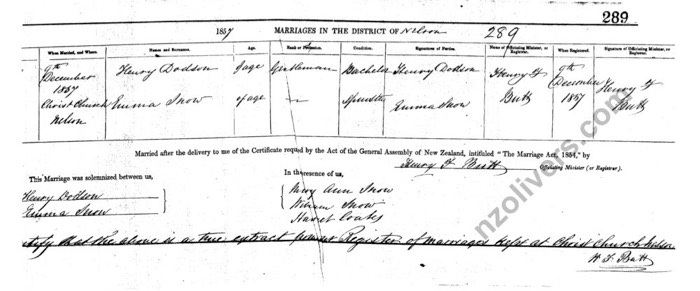 289
1857 MARRIAGES IN THE DISTRICT OF Nelson 289
When Married, and Where. Names and Surnames. Age. Rank or Profession. Condition. Signatures of Parties. Name of Officiating Minister, or Registrar. When Registered. Signature of Officiating Minister, or Registrar.
9th December 1857 Christ Church Nelson
Henry Dodson of age Gentleman Bachelor Henry Dodson Henry F Butt 9th December 1857 Henry F Butt
Emma Snow of age Spinster Emma Snow
Married after the delivery to me of the Certificate required by the Act of the General Assembly of New Zealand, intituled "The Marriage Act, 1854," by
Henry F Butt Officiating Minister (or Registrar).
This Marriage was solemnized between us, In the presence of us,
Henry Dodson
Emma Snow
Mary Ann Snow
William Snow
Harriet Coates
tify that the above is a true extract from Register of marriages kept at Christ Church Nelson
H. F. Butt
nzolivers.com